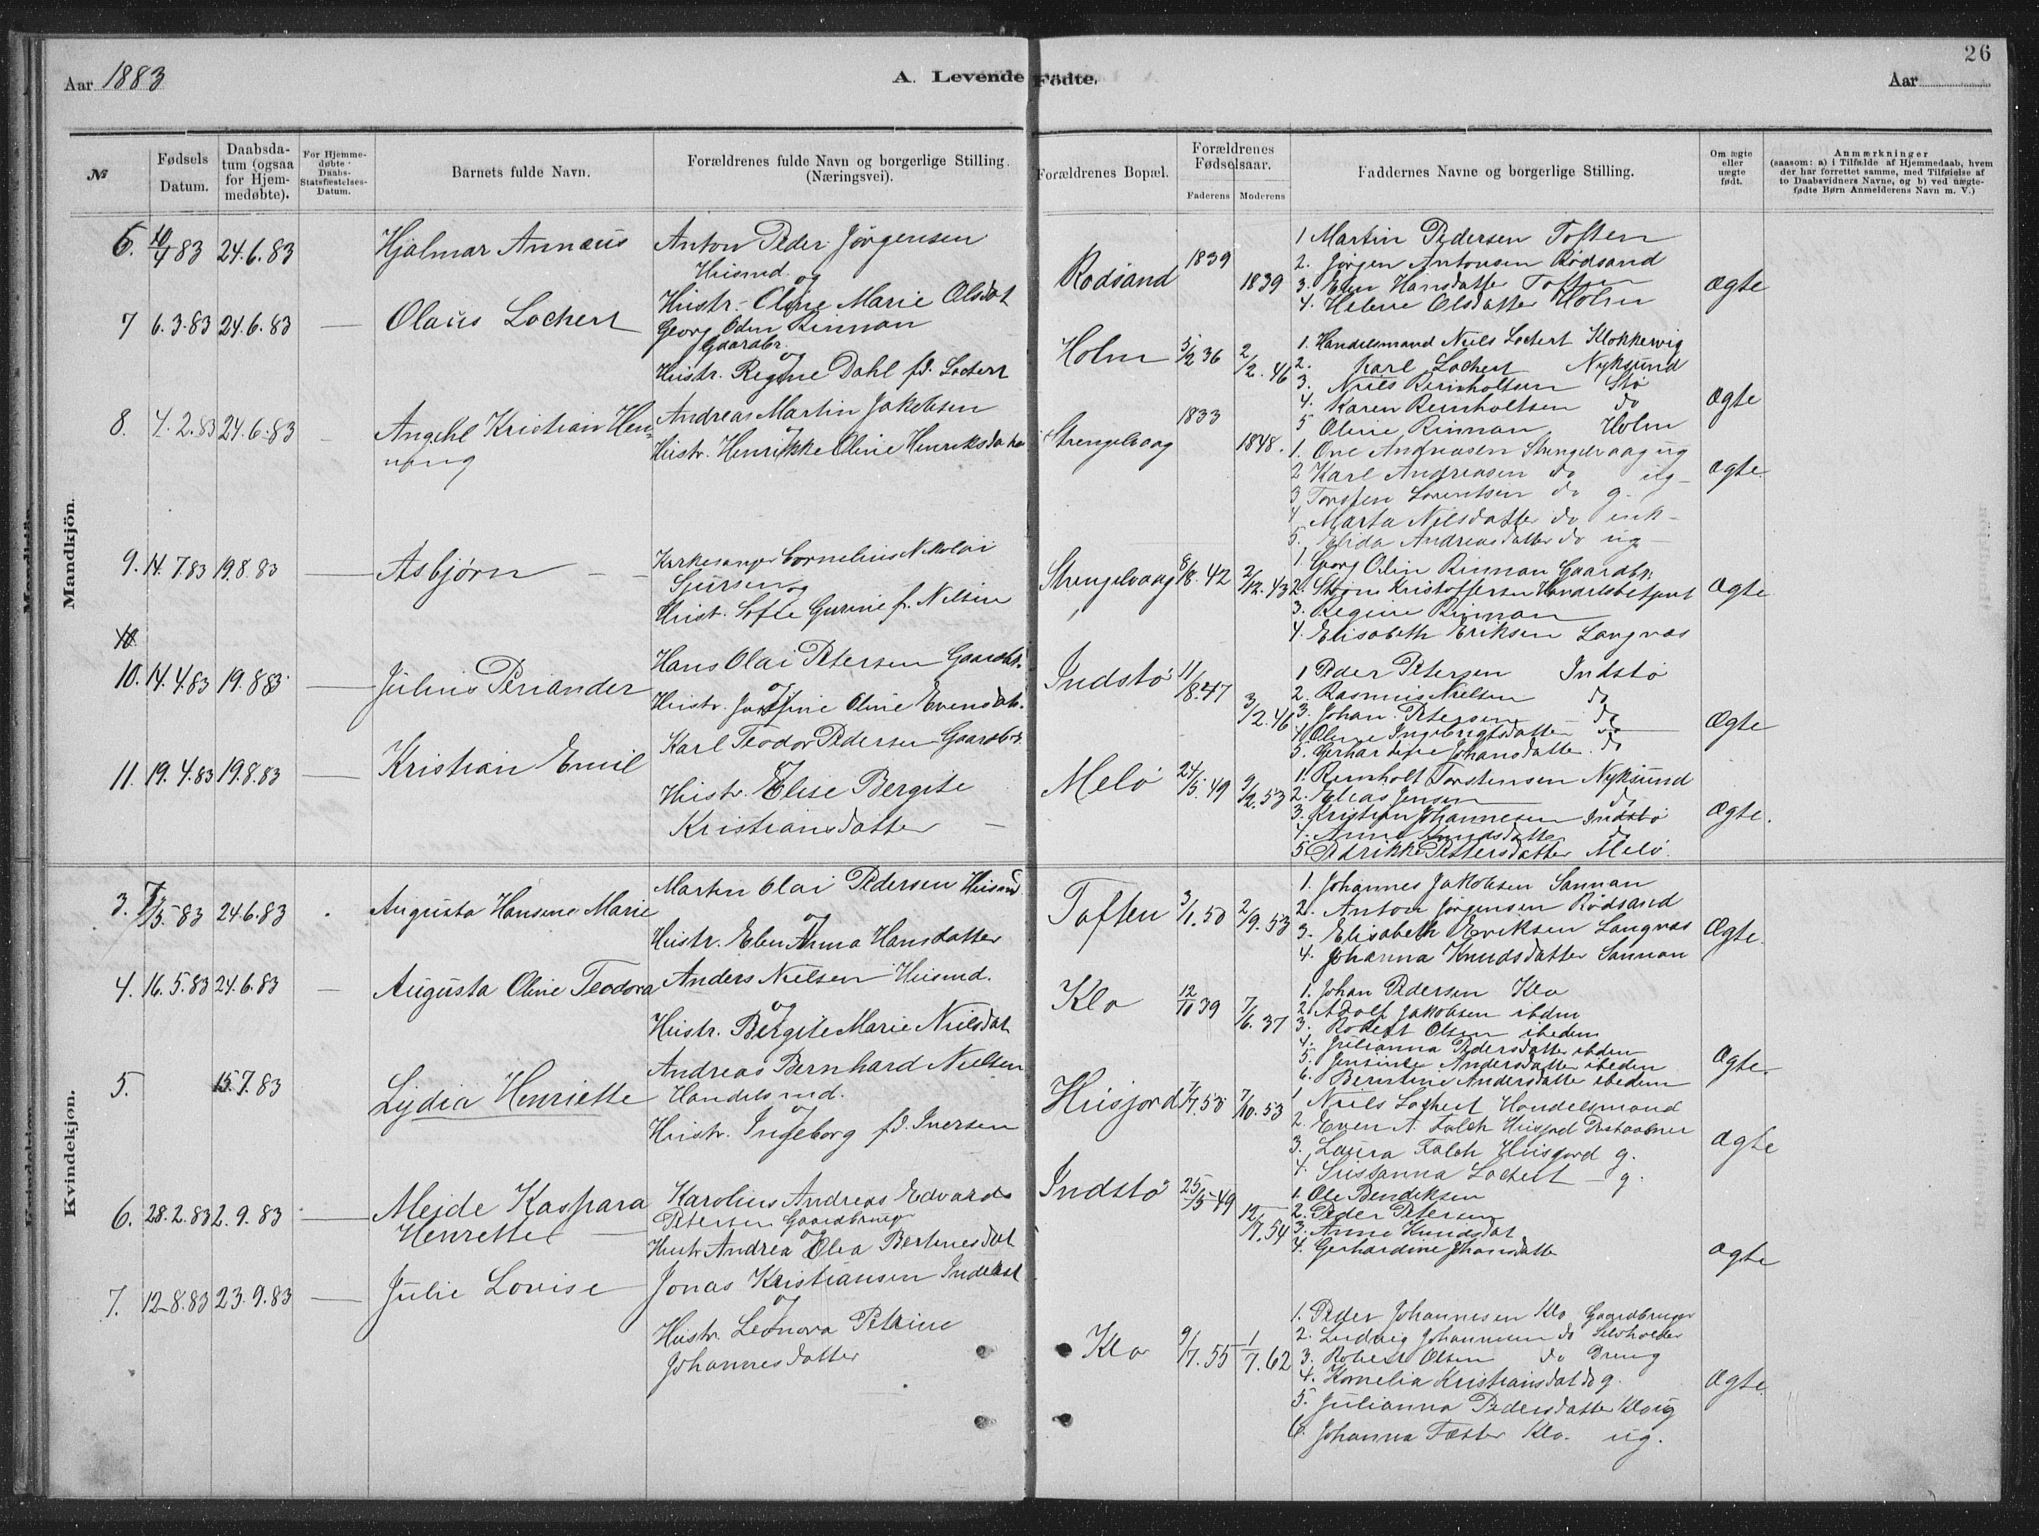 Aar 1883
A. Levende Födte.
26
Aar
№
Fødsels Datum.
Daabsdatum (ogsaa for Hjemmedøbte).
For Hjemmedøbte Daabs-Statsfæstelses-Datum.
Barnets fulde Navn.
Forældrenes fulde Navn og borgerlige Stilling. (Næringsvei).
Forældrenes Bopæl.
Forældrenes Fødselsaar.
Faderens
Moderens
Faddernes Navne og borgerlige Stilling.
Om ægte eller uægte født.
Anmærkninger
(saasom: a) i Tilfælde af Hjemmedaab, hvem
der har forrettet samme, med Tilføielse af
to Daabsvidners Navne, og b) ved uægte-
fødte Børn Anmelderens Navn m. V.)
Mandkjön.
6. 10/4 83 24.6.83 Hjalmar Annæus
Anton Peder Jørgensen
Husmd. og
Hustr. Oline Marie Olsdat
Rødsand 1839 1839
1 Martin Pedersen Toften
2. Jørgen Antonsen Rødsand
3. Elen Hansdatter Toften
4. Helene Olsdatter Holm
Ægte
7 6.3.83 24.6.83 — Olaus Lochert
Georg Odin Rinnan
Gaardbr.
og
Hustr. Regine Dahl fd. Lochert
Holm 5/2 36 2/2.46
1. Handelsmand Niels Lochert Klokkervig
2. Karl Lochert Nyksund
3. Niels Reinholtsen Stø
4. Karen Reinholtsen do
5 Oline Rinnan Holm
Ægte
8. 4.2.83 24.6.83 — Angehl Kristian Hen-
ning
Andreas Martin Jakobsen
og
Hustr. Henrikke Oline Henriksdatter
Strengelvaag 1833 1848.
1. Ove Andreasen Strengelvaag ug
2 Karl Andreasen do ug
3 Torsten Lorentsen do g.
4 Marta Nilsdatter do enk-
5. Elida Andreasdatter do ug
Ægte.
9. 14.7.83 19.8.83 — Asbjørn
Kirkesanger Cornelius Nikolai
Sjursen og
Hust. Sofie Gurine f. Nilsen
Strengelvaag 8/8.42 2/12.43
1. Georg Odin Rinnan Gaardbr.
2. Støjne Kristoffersen Handelsbetjent
3. Regine Rinnan
4. Elisabeth Eriksen Langnæs
Ægte
10
10. 14.4.83 19.8 83 — Julius Periander
Hans Olai Petersen Gaardbr.
og
Hustr. Josefine Oline Evensdat.
Indstø 11/8.47 3/2.46
1 Peder Petersen Indstø
2. Rasmus Nielsen do
3. Johan Petersen do
4 Oline Ingebrigtsdatter do
5. Gerhardine Johansdatter do
Ægte
11. 19.4.83 19.8.83 — Kristian Emil
Karl Teodor Pedersen Gaardbr.
og
Hustr. Elise Bergite
Kristiansdatter
Melø 24/5.49 9/2.53
1. Reinholt Torstensen Nyksund
2. Elias Jensen do
3. Kristian Johannesen Indstø
4. Anne Knudsdatter do
5 Pedrikke Pettersdatter Melø.
Ægte.
Kvindekjön.
3. 7/5 83 24.6.83 Augusta Hansine Marie
Martin Olai Pedersen Husmd
og
Hustr. Elen Anna Hansdatter
Toften 3/1.50 2/9.53
1. Johannes Jakobsen Sannan
2. Anton Jørgensen Rødsand
3. Elisabeth Eriksen Langnæs
4. Johanna Knudsdatter Sannan
Ægte.
4. 16.5.83 24.6.83 — Augusta Oline Teodora
Anders Nielsen Husmd.
og
Hustr. Bergite Marie Nielsdat
Klo 12/10 39 7/6.37
1. Johan Pedersen Klo
2. Adolf Jakobsen ibden
3. Robert Olsen ibedem
4. Julianna Pedersdatter ibden
5. Jensine Andersdatter ibedem
6. Berntine Andersdatter ibedem
Ægte.
5. 15.7.83 Lydia Henriette
Andreas Bernhard Nielsen
Handelsmd.
og
Hustr. Ingeborg fd. Iversen
Husjord 7/7.50 7/10.53
1 Niels Lochert Handelsmand
2. Even A. Falch Husjord Postaabner
3. Laura Falch Husjord g.
4. Susanna Lochert g.
Ægte
6. 28.2.83 2.9.83 — Meide Kaspara
Henrette
Karolius Andreas Edvards
Petersen Gaardbruger
og
Hustr Andrea Olea Bertinesdat
Indstø 25/5 49 12/7.54
1. Ole Bendiksen
2. Peder Petersen
3. Anne Knudsdat
4. Gerhardine Johansdatte
Ægte
7. 12.8.83 23.9.83 — Julie Lovise
Jonas Kristiansen Inderst
og
Hustr. Leonora Petrine
Johannesdatter
Klo 9/7.55 1/7.62
1. Peder Johannesen Klo Gaardbruger
2. Ludvig Johannesen do Selvholder
3. Robert Olsen do Dreng
4. Kornelia Kristiansdat do g.
5. Julianna Pedersdatter Klo ug
6. Johanna Tætter Klo. ug.
Ægte.